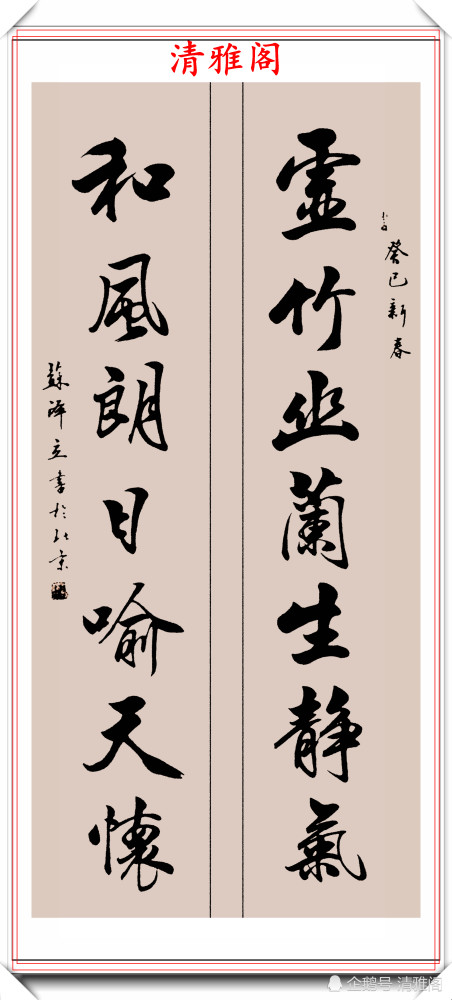 清雅阁
癸巳新春
靈竹幽蘭生静氣
和風朗日喻天懷
蘇澤立書於北京
企鹅号 清雅阁